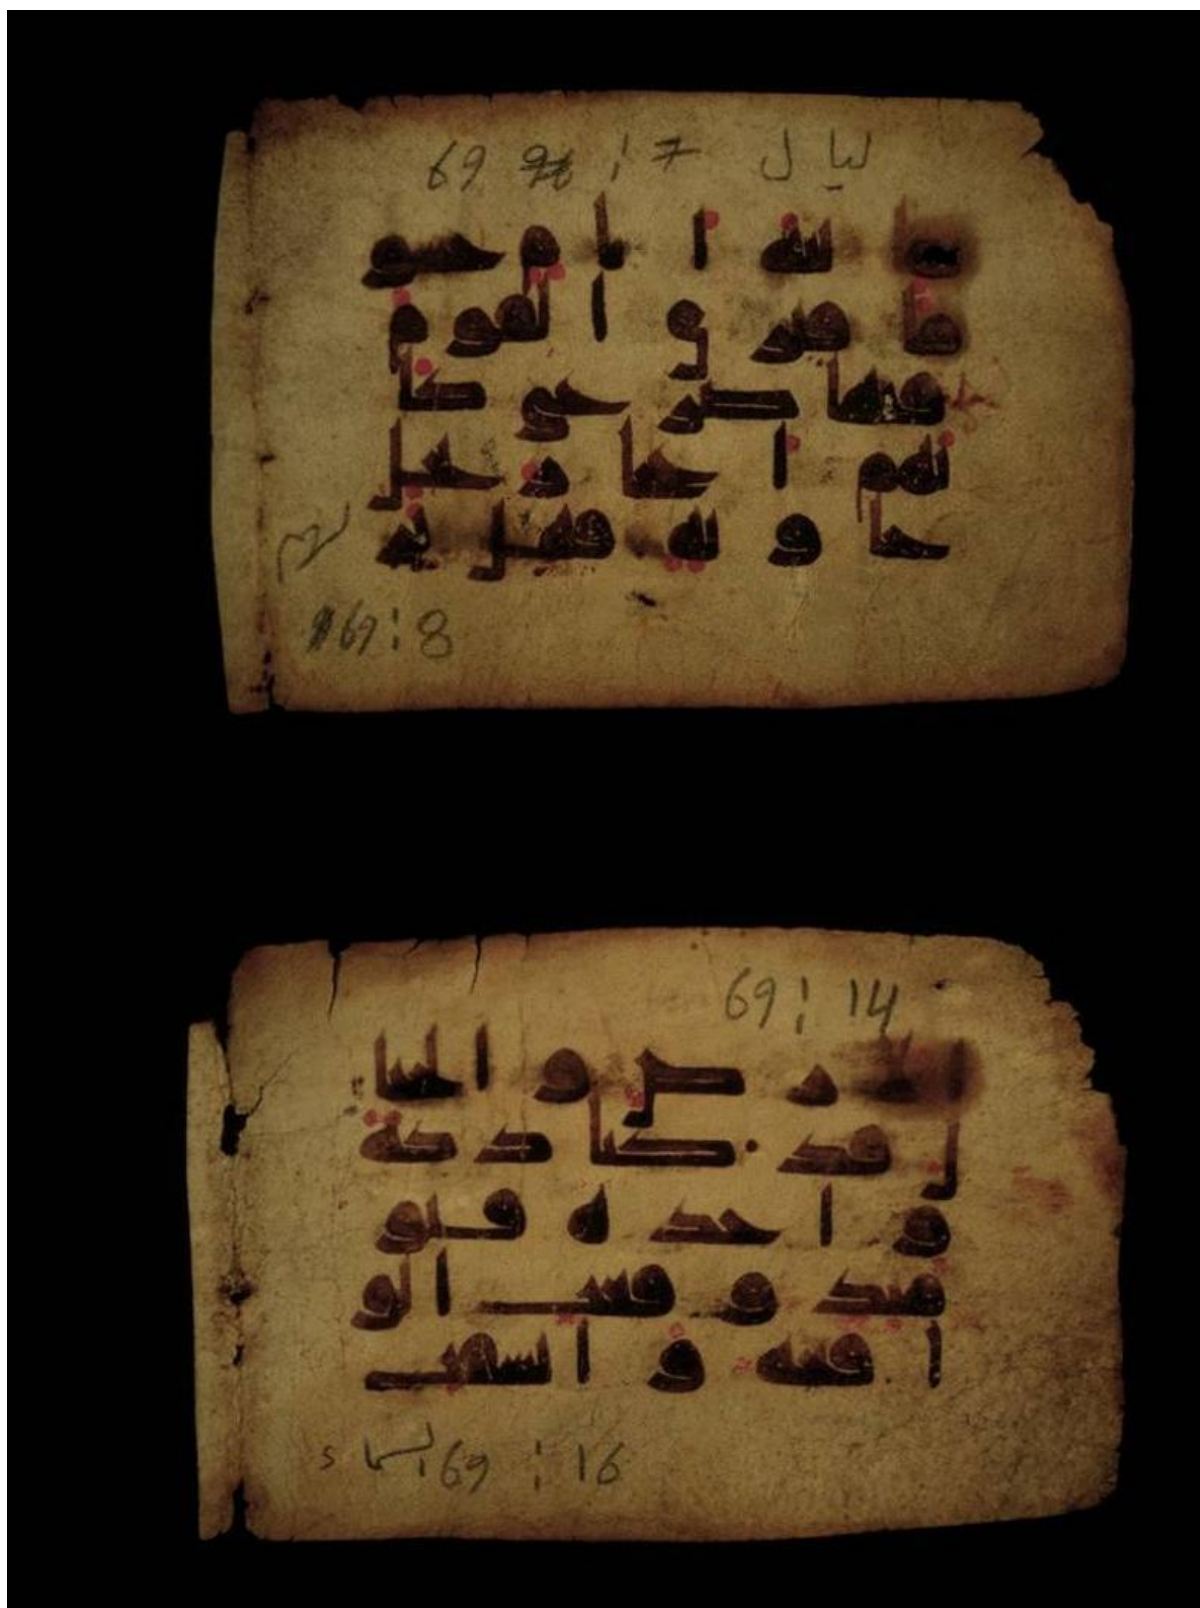 69 : 7 ليال
نية ايام حسو
ما فترى القوم
فيها صرعى كا
نهم اعجاز نخل
خاوية فهل تر
69 : 8
69 : 14
الارض والجبا
ل فدكتا دكة
واحدة فيو
مئذ وقعت الو
اقعة وانشقت
69 : 16 السما